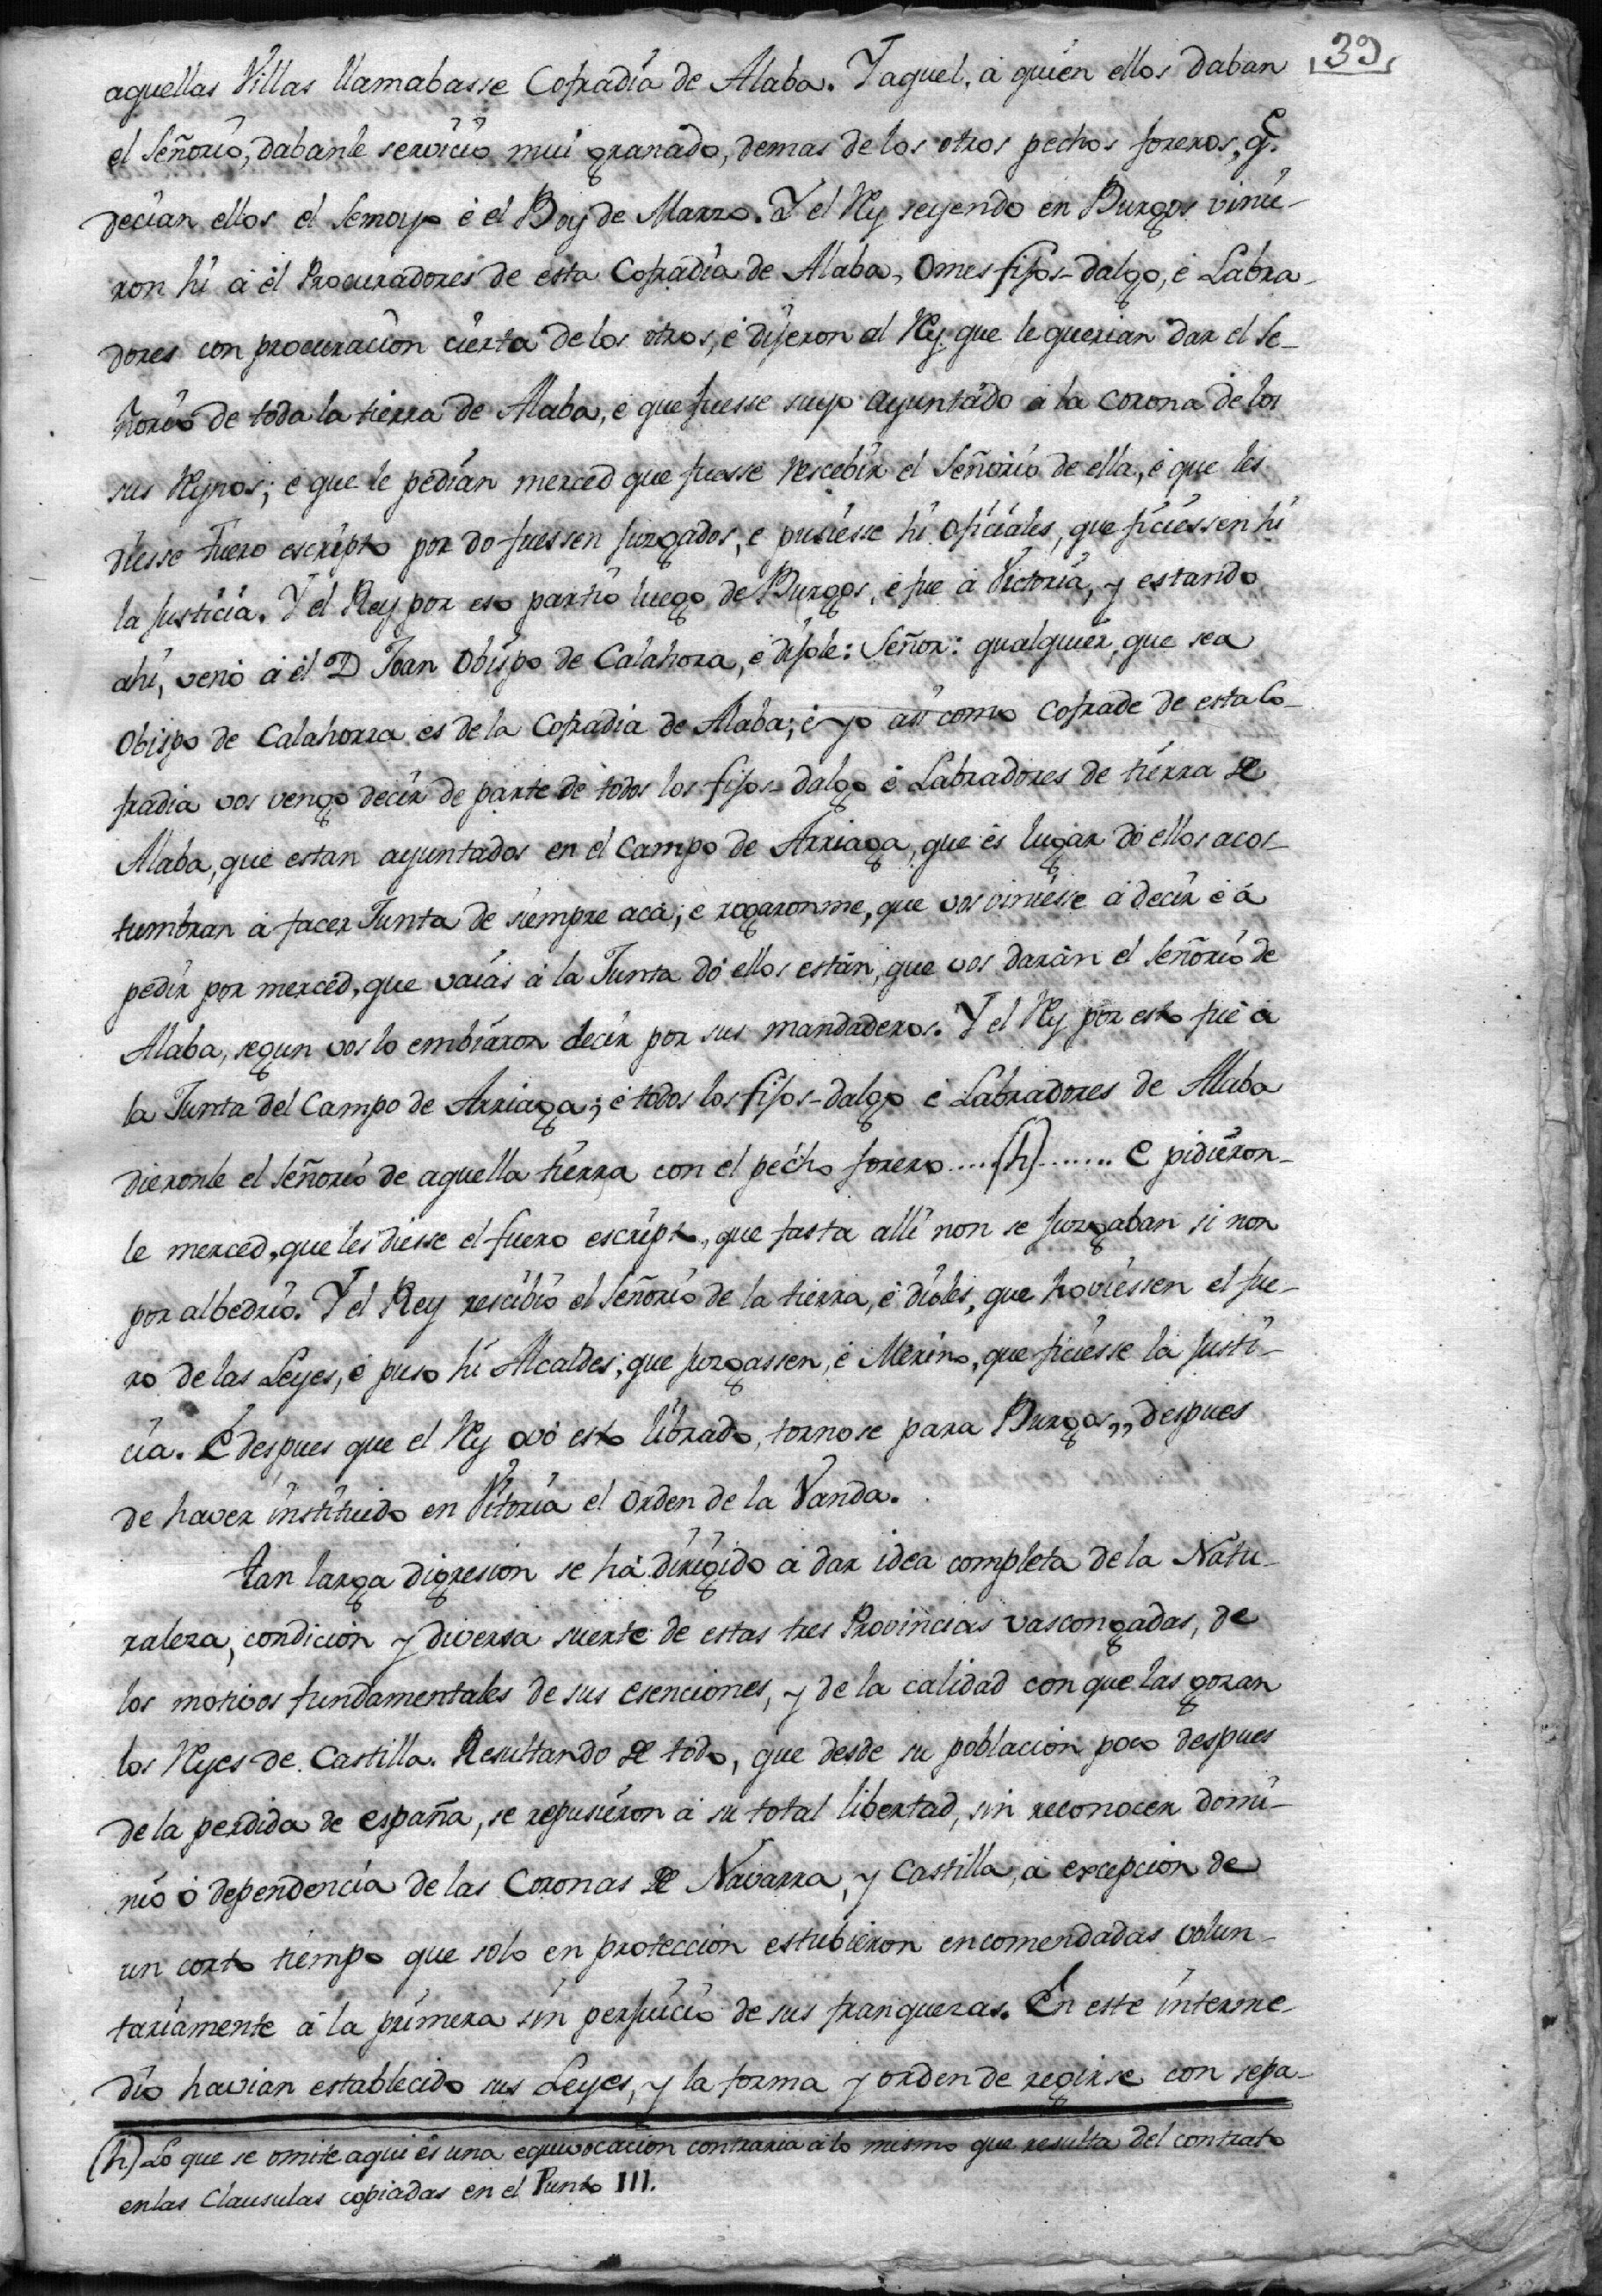 39
aquellas Villas llamabasse Cofradía de Alaba. Y aquel, à quien ellos daban
el Señorío, dabanle servicio mui granado, demas de los otros pechos foreros, q.e
decian ellos el Semoyo è el Boy de Marzo. Y el Rey seyendo en Burgos vinie-
ron hi à èl Procuradores de esta Cofradía de Alaba, Omes fijos-dalgo, è Labra-
dores con procuracion cierta de los otros, è dijeron al Rey que le querian dar el Se-
ñorio de toda la tierra de Alaba, è que fuesse suyo ayuntado à la corona de los
sus Reynos; è que le pedían merced que fuesse rescebir el Señorío de ella, è que les
diesse fuero escripto por do fuessen juzgados, e pusiesse hi Oficiales, que ficiessen hi
la justicia. Y el Rey por eso partiò luego de Burgos, è fue à Victoria, y estando
ahi, venò à èl D Joan Obispo de Calahora, è dijole: Señor: qualquier, que sea
Obispo de Calahorra es de la Cofradia de Alaba; è yo asi como Cofrade de esta Co-
fradia vos vengo decir de parte de todos los fijos-dalgo è Labradores de tierra de
Alaba, que estan ayuntados en el Campo de Arriaga, que es lugar dò ellos acos-
tumbran à facer Junta de siempre acà; è rogaronme, que vos viniesse à decir è à
pedir por merced, que vaiàs à la Junta dò ellos estàn, que vos daràn el Señorio de
Alaba, segun vos lo embiaron decir por sus mandaderos. Y el Rey por esto fue à
la Junta del Campo de Arriaga; è todos los fijos-dalgo è Labradores de Alaba
dieronle el Señorío de aquella tierra con el pecho forero.....(h)....... E pidieron-
le merced, que les diesse el fuero escripto, que fasta alli non se juzgaban si non
por albedrío. Y el Rey rescibiò el Señorío de la tierra, è diòles, que hoviessen el fue-
ro de las Leyes, è puso hi Alcaldes, que juzgassen, è Merino, que ficiesse la justi-
cia. E despues que el Rey ovò esto librado, tornose para Burgos,, despues
de haver instituido en Vitoria el Orden de la Vanda.
Tan larga digresion se hà dirigido à dar idea completa de la Natu-
raleza, condicion y diversa suerte de estas tres Provincias vascongadas, de
los motivos fundamentales de sus esenciones, y de la calidad con que las gozan
los Reyes de Castilla. Resultando de todo, que desde su poblacion poco despues
de la perdida de españa, se repusieron à su total libertad, sin reconocer domi-
nio ò dependencia de las Coronas de Navarra, y Castilla, à excepcion de
un corto tiempo que solo en proteccion estubieron encomendadas volun-
tariamente à la primera sin perjuicio de sus franquezas. En este interme-
dio havian establecido sus Leyes, y la forma y orden de regirse con sepa-
(h) Lo que se omite aqui es una equivocacion contraria à lo mismo que resulta del contrato
en las Clausulas copiadas en el Punto III.